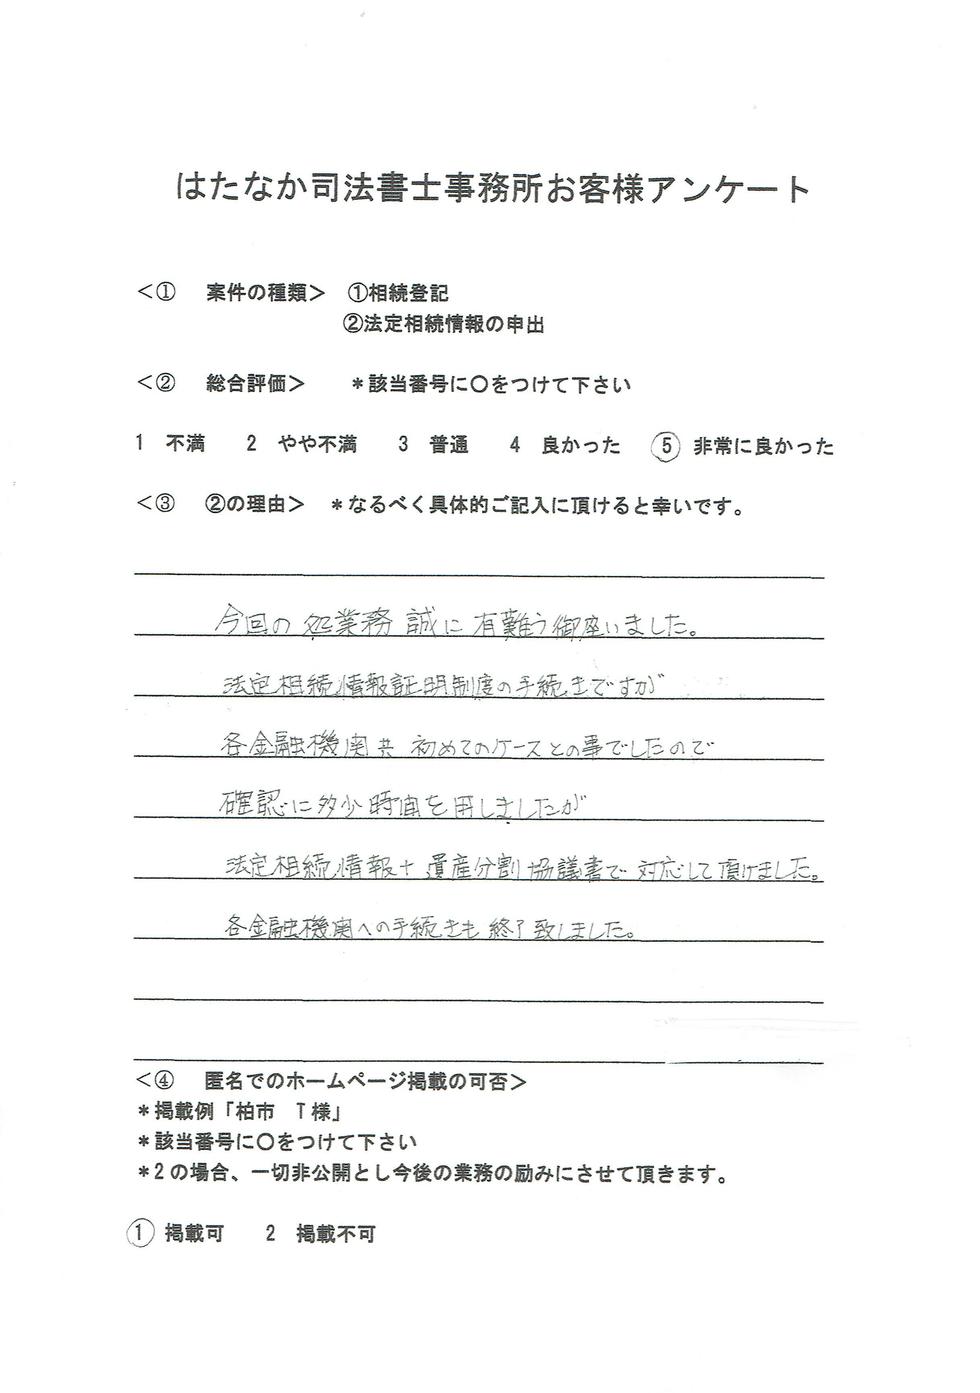 はたなか司法書士事務所お客様アンケート
＜①　案件の種類＞　①相続登記
②法定相続情報の申出
＜②　総合評価＞　＊該当番号に〇をつけて下さい
1　不満　2　やや不満　3　普通　4　良かった　⑤　非常に良かった
＜③　②の理由＞　＊なるべく具体的ご記入に頂けると幸いです。
今回の処業務 誠に 有難う御座いました。
法定相続情報証明制度の手続きですが
各金融機関共 初めてのケースとの事でしたので
確認に多少時間を用しましたが
法定相続情報＋遺産分割協議書で 対応して頂けました。
各金融機関への手続きも 終了致しました。
＜④　匿名でのホームページ掲載の可否＞
＊掲載例「柏市　T様」
＊該当番号に〇をつけて下さい
＊2の場合、一切非公開とし今後の業務の励みにさせて頂きます。
①　掲載可　2　掲載不可